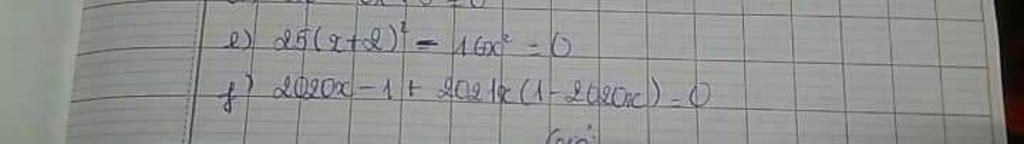 e) 25(x+2)² - 16x² = 0
f) 2020x - 1 + 2021x(1 - 2020x) = 0